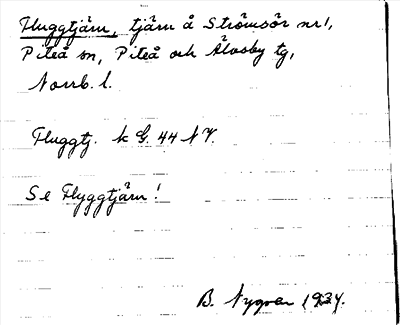 Fluggtjärn, tjärn å Strömsör nr 1,
Piteå sn, Piteå och Älvsby tg,
Norrb. l.
Fluggtj. k G. 44 NV.
Se Flyggtjärn!
B. Nygren 1934.